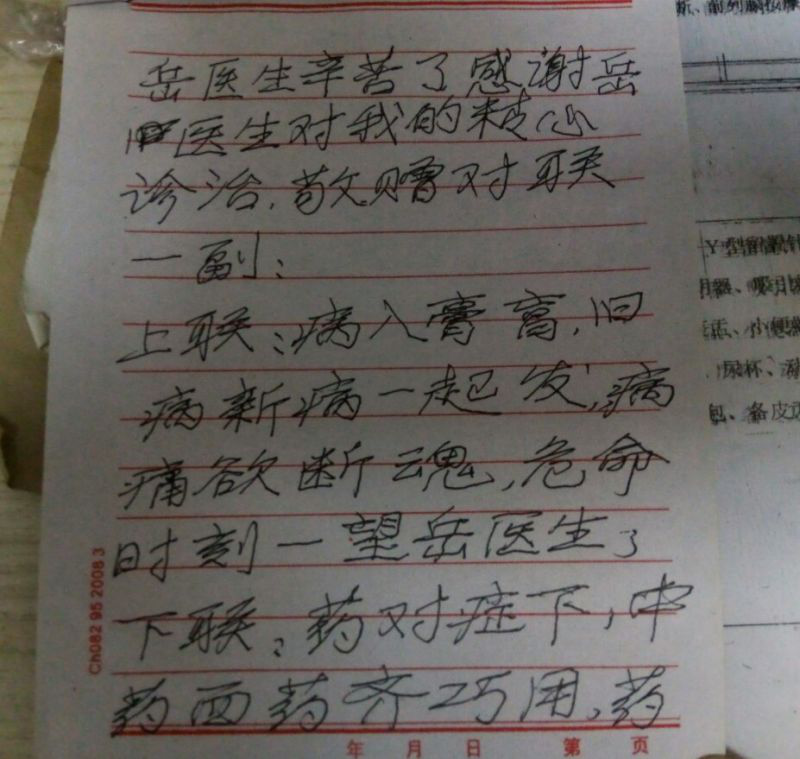 岳医生辛苦了感谢岳
医生对我的精心
诊治,敬赠对联
一副:
上联:病入膏肓,旧
病新病一起发,病
痛欲断魂,危命
时刻一望岳医生,
下联:药对症下,中
药西药齐巧用,药
年 月 日 第 页
Ch082 95 2008 3
Y型留置针
、吸
、小便
尿杯、
包、备皮